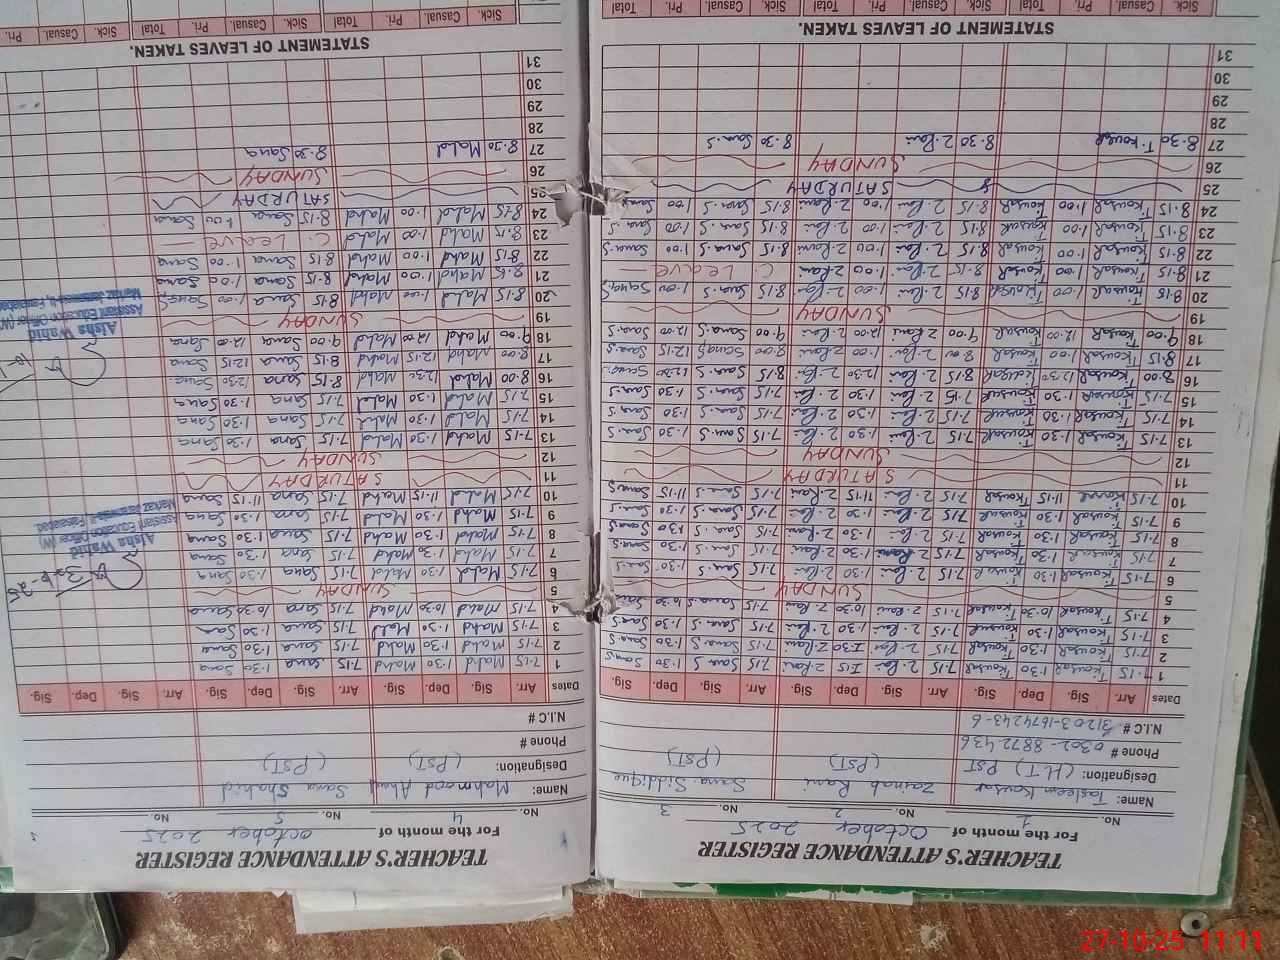 TEACHER'S ATTENDANCE REGISTER
For the month of October 2025
No. 1 No. 2 No. 3
Name: Tasleem Kousar Zainab Rani Sana Siddique
Designation: (H.T) PST (PST) (PST)
Phone # 0302-8872436
N.I.C # 31203-1674243-6
Dates Arr. Sig. Dep. Sig. Arr. Sig. Dep. Sig. Arr. Sig. Dep. Sig.
1 7.15 T.Kousar 1.30 T.Kousar 7.15 Z.Rani 1.15 Z.Rani 7.15 Sana.S 1.30 Sana.S
2 7.15 T.Kousar 1.30 T.Kousar 7.15 Z.Rani 1.30 Z.Rani 7.15 Sana.S 1.30 Sana.S
3 7.15 T.Kousar 1.30 T.Kousar 7.15 Z.Rani 1.30 Z.Rani 7.15 Sana.S 1.30 Sana.S
4 7.15 T.Kousar 10.30 T.Kousar 7.15 Z.Rani 10.30 Z.Rani 7.15 Sana.S 10.30 Sana
5 SUNDAY
6 7.15 T.Kousar 1.30 T.Kousar 7.15 Z.Rani 1.30 Z.Rani 7.15 Sana.S 1.30 Sana.S
7 7.15 T.Kousar 1.30 T.Kousar 7.15 Z.Rani 1.30 Z.Rani 7.15 Sana.S 1.30 Sana.S
8 7.15 T.Kousar 1.30 T.Kousar 7.15 Z.Rani 1.30 Z.Rani 7.15 Sana.S 1.30 Sana.S
9 7.15 T.Kousar 1.30 T.Kousar 7.15 Z.Rani 1.30 Z.Rani 7.15 Sana.S 1.30 Sana.S
10 7.15 T.Kousar 11.15 T.Kousar 7.15 Z.Rani 11.15 Z.Rani 7.15 Sana.S 11.15 Sana.S
11 SATURDAY
12 SUNDAY
13 7.15 T.Kousar 1.30 T.Kousar 7.15 Z.Rani 1.30 Z.Rani 7.15 Sana.S 1.30 Sana.S
14 7.15 T.Kousar 1.30 T.Kousar 7.15 Z.Rani 1.30 Z.Rani 7.15 Sana.S 1.30 Sana.S
15 7.15 T.Kousar 1.30 T.Kousar 7.15 Z.Rani 1.30 Z.Rani 7.15 Sana.S 1.30 Sana.S
16 8.00 T.Kousar 12.30 T.Kousar 8.15 Z.Rani 12.30 Z.Rani 8.15 Sana.S 12.30 Sana.S
17 8.15 T.Kousar 1.00 T.Kousar 8.00 Z.Rani 1.00 Z.Rani 8.00 Sana.S 12.15 Sana.S
18 9.00 T.Kousar 12.00 T.Kousar 9.00 Z.Rani 12.00 Z.Rani 9.00 Sana.S 12.00 Sana.S
19 SUNDAY
20 8.15 T.Kousar 1.00 T.Kousar 8.15 Z.Rani 1.00 Z.Rani 8.15 Sana.S 1.00 Sana.S
21 8.15 T.Kousar 1.00 T.Kousar 8.15 Z.Rani 1.00 Z.Rani C. Leave
22 8.15 T.Kousar 1.00 T.Kousar 8.15 Z.Rani 1.00 Z.Rani 8.15 Sana.S 1.00 Sana.S
23 8.15 T.Kousar 1.00 T.Kousar 8.15 Z.Rani 1.00 Z.Rani 8.15 Sana.S 1.00 Sana.S
24 8.15 T.Kousar 1.00 T.Kousar 8.15 Z.Rani 1.00 Z.Rani 8.15 Sana.S 1.00 Sana.S
25 SATURDAY
26 SUNDAY
27 8.30 T.Kousar 8.30 Z.Rani 8.30 Sana.S
28
29
30
31
STATEMENT OF LEAVES TAKEN.
Sick. Casual. Pri. Total Sick. Casual. Pri. Total Sick. Casual. Pri. Total
TEACHER'S ATTENDANCE REGISTER
For the month of October 2025
No. 4 No. 5 No.
Name: Mahmood Ahmad Sana Shahid
Designation: (PST) (PST)
Phone #
N.I.C #
Dates Arr. Sig. Dep. Sig. Arr. Sig. Dep. Sig. Arr. Sig. Dep. Sig.
1 7.15 Mahd 1.30 Mahd 7.15 Sana 1.30 Sana
2 7.15 Mahd 1.30 Mahd 7.15 Sana 1.30 Sana
3 7.15 Mahd 1.30 Mahd 7.15 Sana 1.30 Sana
4 7.15 Mahd 10.30 Mahd 7.15 Sana 10.30 Sana
5 SUNDAY
6 7.15 Mahd 1.30 Mahd 7.15 Sana 1.30 Sana
7 7.15 Mahd 1.30 Mahd 7.15 Sana 1.30 Sana
8 7.15 Mahd 1.30 Mahd 7.15 Sana 1.30 Sana
9 7.15 Mahd 1.30 Mahd 7.15 Sana 1.30 Sana
10 7.15 Mahd 11.15 Mahd 7.15 Sana 11.15 Sana
11 SATURDAY
12 SUNDAY
13 7.15 Mahd 1.30 Mahd 7.15 Sana 1.30 Sana
14 7.15 Mahd 1.30 Mahd 7.15 Sana 1.30 Sana
15 7.15 Mahd 1.30 Mahd 7.15 Sana 1.30 Sana
16 8.00 Mahd 12.30 Mahd 8.15 Sana 12.30 Sana
17 8.00 Mahd 12.15 Mahd 8.15 Sana 12.15 Sana
18 9.00 Mahd 12.00 Mahd 9.00 Sana 12.00 Sana
19 SUNDAY
20 8.15 Mahd 1.00 Mahd 8.15 Sana 1.00 Sana
21 8.15 Mahd 1.00 Mahd 8.15 Sana 1.00 Sana
22 8.15 Mahd 1.00 Mahd 8.15 Sana 1.00 Sana
23 8.15 Mahd 1.00 Mahd C. Leave
24 8.15 Mahd 1.00 Mahd 8.15 Sana 1.00 Sana
25 SATURDAY
26 SUNDAY
27 8.30 Mahd 8.30 Sana
28
29
30
31
STATEMENT OF LEAVES TAKEN.
Sick. Casual. Pri. Total Sick. Casual. Pri. Total Sick. Casual. Pri.
Aisha Wahid
Assistant Education Officer (W)
Aisha Wahid
Assistant Education Officer (W)
27-10-25 11:11